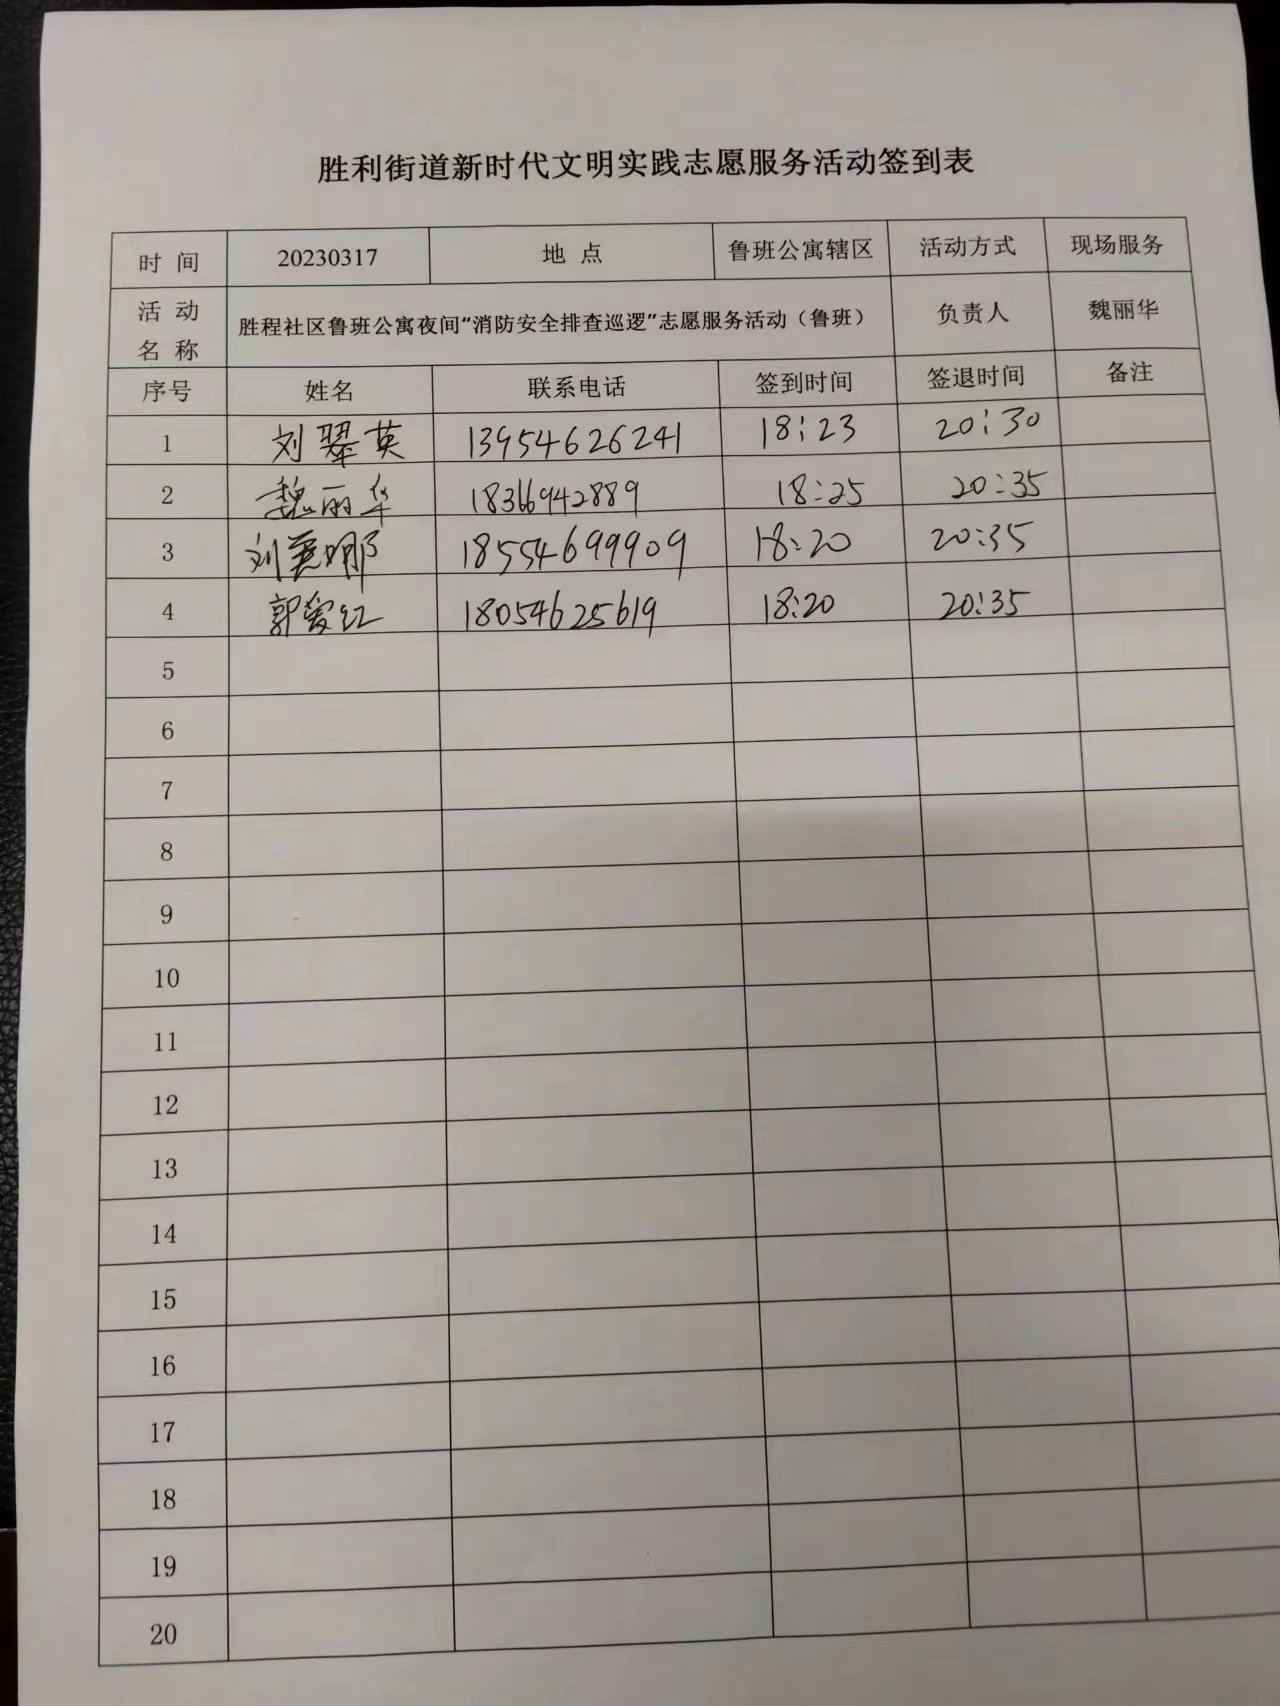 胜利街道新时代文明实践志愿服务活动签到表
时 间 20230317 地 点 鲁班公寓辖区 活动方式 现场服务
活 动 名 称 胜程社区鲁班公寓夜间“消防安全排查巡逻”志愿服务活动（鲁班） 负责人 魏丽华
序号 姓名 联系电话 签到时间 签退时间 备注
1 刘翠英 13954626241 18:23 20:30
2 魏丽华 18366942889 18:25 20:35
3 刘 娜 18554699909 18:20 20:35
4 郭爱红 18054625619 18:20 20:35
5
6
7
8
9
10
11
12
13
14
15
16
17
18
19
20